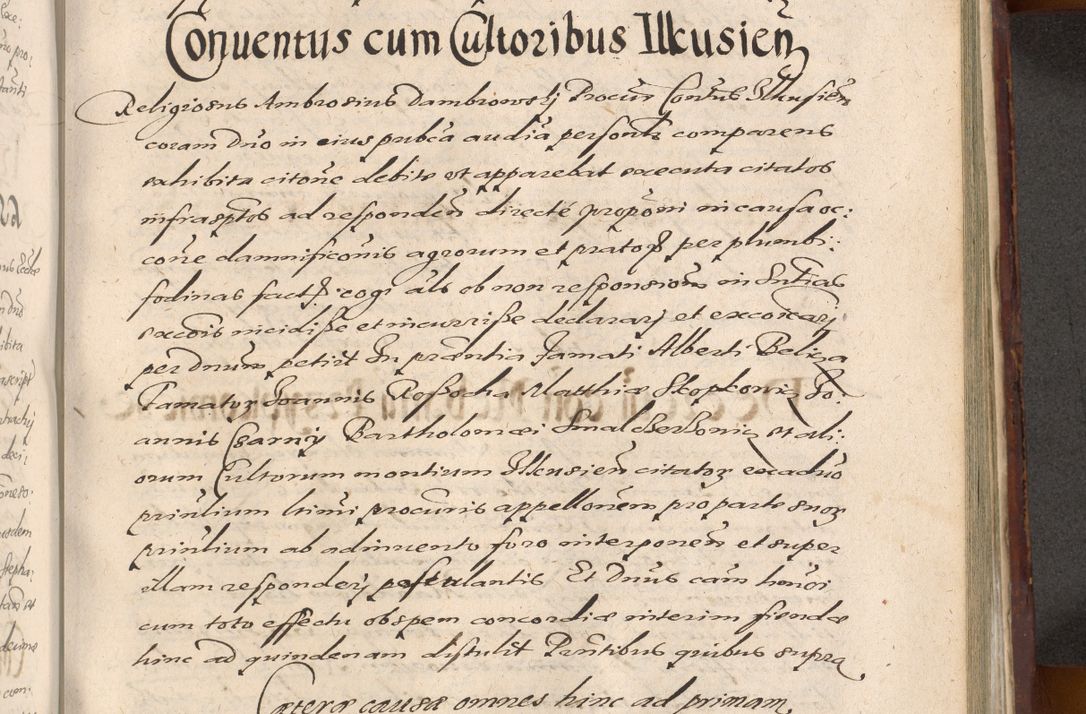 Conuentus cum Cultoribus Ilkusien̄
Religiosus Ambrosius Dambrowskj Procur̄ Con̄tus Illkusien̄
coram Dn̄o in eius pub̄ca audīa personlr comparens
exhibita citōne debite ut apparebat executa citatos
infrasp̄tos ad respondend̄ directè propōni in causa oc:
cōne damnificōnis agrorum et pratoꝝ per plumbi:
fodinas factꝝ: cogi al̄s ob non responsionem in Sn̄tias
exco͞is incidiſse et incurriſse declararj et excōicarj
per dnum petijt In prӕntia famati Alberti Beliza
Famatoꝝ Joannis Roſſocha Matthiæ Skopkonis Jo:
annis Czarny Bartholomæi Smalcserbonis et ali:
orum Cultorum montium Illcusien̄ citatoꝝ ex aduo
prin̄lium l̄timi procur̄is appellōnem pro parte suoꝝ
prin̄lium ab adinuento foro interponen̄ et super
illam responderj postulantis Et Dn̄us cām hm̄oi
cum toto effectu ob spem concordiæ interim fiendæ
hinc ad quindenam distulit Prn̄tibus quibus supra
Cæteræ causæ omnes hinc ad primam